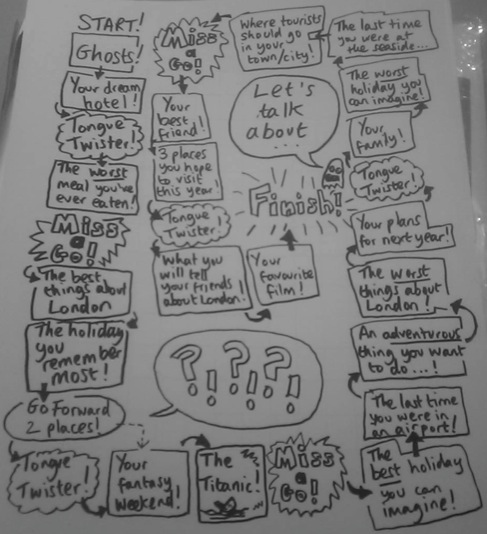 START!
Ghosts!
Your dream
hotel!
Tongue
Twister!
The worst
meal you've
ever eaten!
Miss
a
Go!
The best
things about
London
The holiday
you
remember
most!
Go Forward
2 places!
Tongue
Twister!
Your
fantasy
weekend!
The
Titanic!
Miss
a
Go!
The
best holiday
you can
imagine!
The last time
you were in
an airport!
An adventurous
thing you want
to do...!
The worst
things about
London!
Your plans
for next year!
Tongue
Twister!
Your
family!
The worst
holiday you
can imagine!
The last time
you were at
the seaside...
Where tourists
should go
in your
town/city!
Miss
a
Go!
Your
best
friend!
3 places
you hope
to visit
this year!
Tongue
Twister!
What you
will tell
your friends
about London!
Your
favourite
film!
Finish!
Let's
talk
about
...
?!?!?!?!